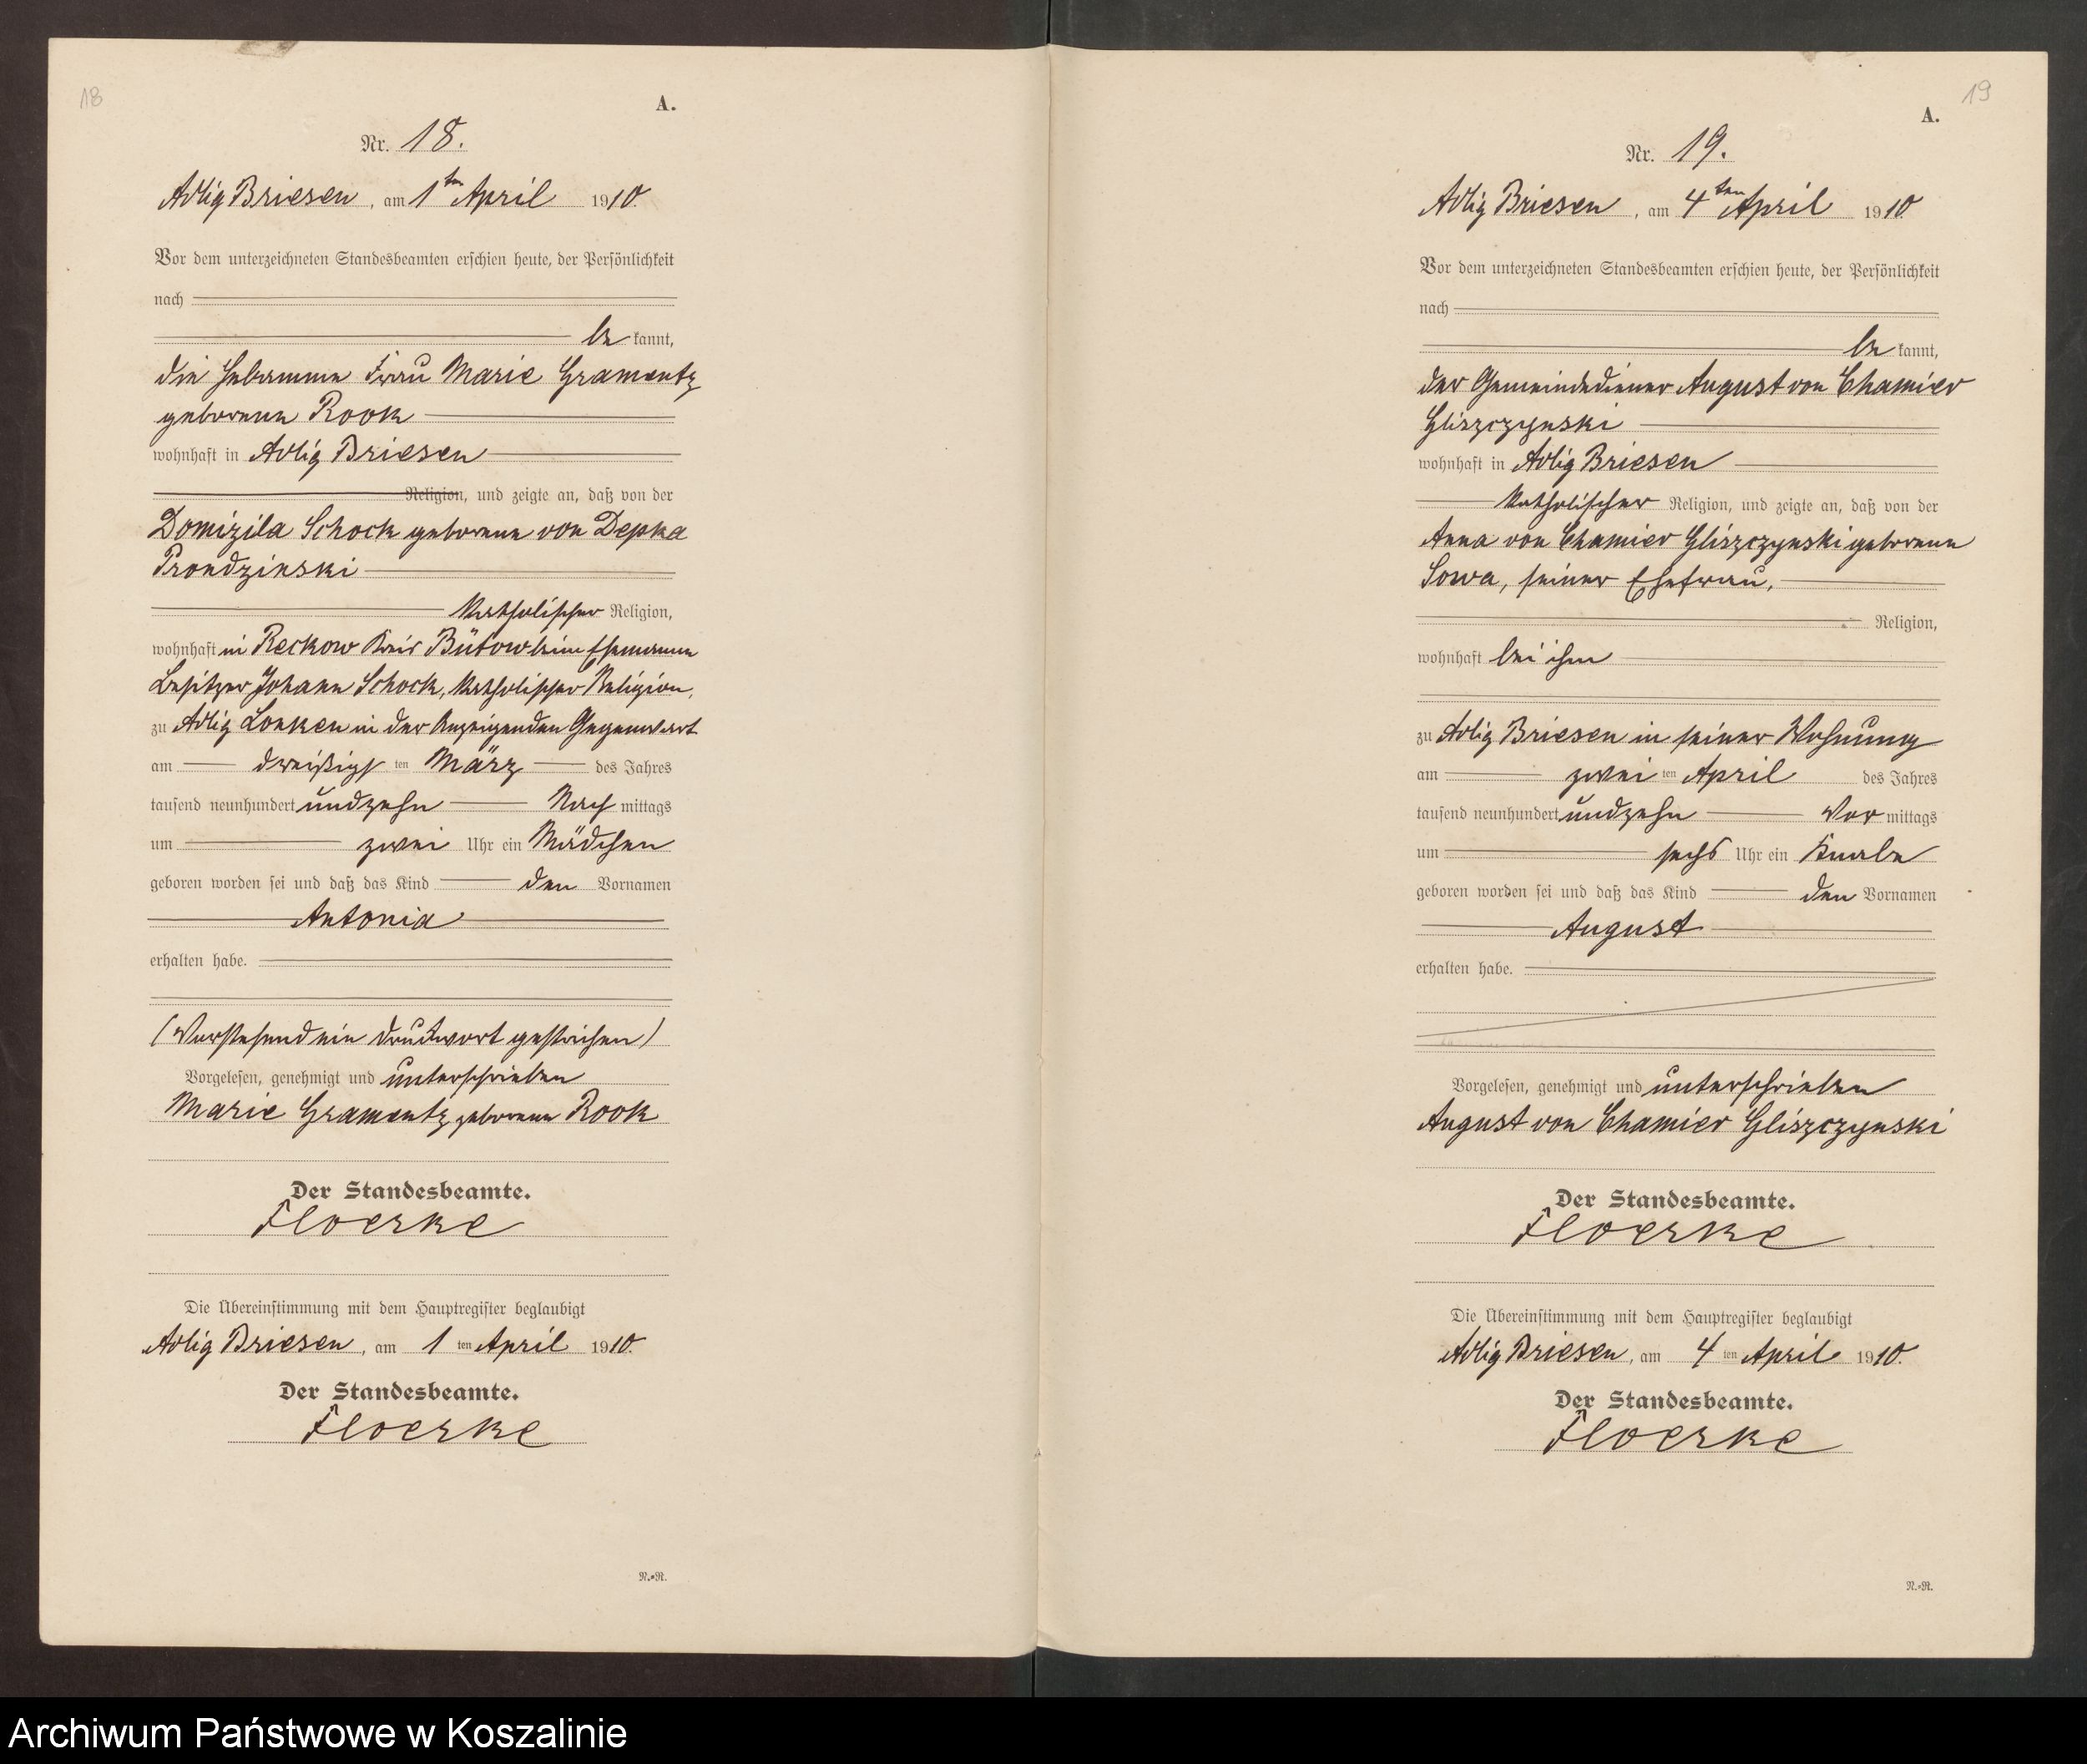 18
A.
Nr. 18.
Adlig Briesen, am 1ten April 1910.
Vor dem unterzeichneten Standesbeamten erschien heute, der Persönlichkeit
nach
be kannt,
die Hebamme Frau Marie Gramentz
geborene Rook
wohnhaft in Adlig Briesen
Religion, und zeigte an, daß von der
Domizila Schock geborene von Depka
Prondzinski
katholischer Religion,
wohnhaft in Reckow Kreis Bütow beim Ehemanne
Besitzer Johann Schock, katholischer Religion,
zu Adlig Lonken in der Anzeigenden Gegenwart
am dreißigs ten März des Jahres
tausend neunhundert undzehn Nach mittags
um zwei Uhr ein Mädchen
geboren worden sei und daß das Kind den Vornamen
Antonia
erhalten habe.
(Vorstehend ein Druckwort gestrichen)
Vorgelesen, genehmigt und unterschrieben
Marie Gramentz geborene Rook
Der Standesbeamte.
Floerke
Die Übereinstimmung mit dem Hauptregister beglaubigt
Adlig Briesen, am 1 ten April 1910.
Der Standesbeamte.
Floerke
N.=R.
19
A.
Nr. 19.
Adlig Briesen, am 4ten April 1910.
Vor dem unterzeichneten Standesbeamten erschien heute, der Persönlichkeit
nach
be kannt,
der Gemeindediener August von Chamier
Gliszczynski
wohnhaft in Adlig Briesen
katholischer Religion, und zeigte an, daß von der
Anna von Chamier Gliszczynski geborene
Sowa, seiner Ehefrau,
Religion,
wohnhaft bei ihm
zu Adlig Briesen in seiner Wohnung
am zwei ten April des Jahres
tausend neunhundert undzehn Vor mittags
um sechs Uhr ein Knabe
geboren worden sei und daß das Kind den Vornamen
August
erhalten habe.
Vorgelesen, genehmigt und unterschrieben
August von Chamier Gliszczynski
Der Standesbeamte.
Floerke
Die Übereinstimmung mit dem Hauptregister beglaubigt
Adlig Briesen, am 4 ten April 1910.
Der Standesbeamte.
Floerke
N.=R.
Archiwum Państwowe w Koszalinie